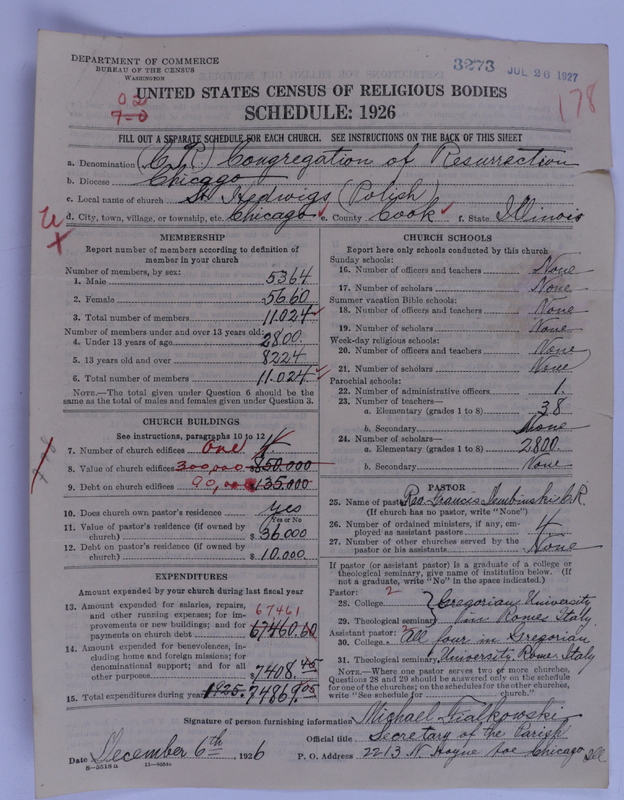 DEPARTMENT OF COMMERCE
BUREAU OF THE CENSUS
WASHINGTON
3273 JUL 26 1927
178
02
7-0
UNITED STATES CENSUS OF RELIGIOUS BODIES
SCHEDULE: 1926
FILL OUT A SEPARATE SCHEDULE FOR EACH CHURCH. SEE INSTRUCTIONS ON THE BACK OF THIS SHEET
a. Denomination (C.R.) Congregation of Resurrection
b. Diocese Chicago
c. Local name of church St. Hedwigs (Polish)
d. City, town, village, or township, etc. Chicago e. County Cook f. State Illinois
MEMBERSHIP
Report number of members according to definition of
member in your church
Number of members, by sex:
1. Male 5364
2. Female 5660
3. Total number of members 11.024
Number of members under and over 13 years old:
4. Under 13 years of age 2800.
5. 13 years old and over 8224
6. Total number of members 11.024
NOTE.—The total given under Question 6 should be
same as the total of males and females given under Question 3.
CHURCH BUILDINGS
See instructions, paragraphs 10 to 12
7. Number of church edifices one
8. Value of church edifices 300,000 $850.000
9. Debt on church edifices 90,000 $135.000
10. Does church own pastor's residence? yes
Yes or No
11. Value of pastor's residence (if owned by
church) $36.000
12. Debt on pastor's residence (if owned by
church) $10.000
EXPENDITURES
Amount expended by your church during last fiscal year
13. Amount expended for salaries, repairs,
and other running expenses; for im-
provements or new buildings; and for
payments on church debt 67461 67460.60
14. Amount expended for benevolences, in-
cluding home and foreign missions; for
denominational support; and for all
other purposes 7408.45
15. Total expenditures during year 1925. 74869.05
CHURCH SCHOOLS
Report here only schools conducted by this church
Sunday schools:
16. Number of officers and teachers None
17. Number of scholars None
Summer vacation Bible schools:
18. Number of officers and teachers None
19. Number of scholars None
Week-day religious schools:
20. Number of officers and teachers None
21. Number of scholars None
Parochial schools:
22. Number of administrative officers 1.
23. Number of teachers—
a. Elementary (grades 1 to 8) 38
b. Secondary None
24. Number of scholars—
a. Elementary (grades 1 to 8) 2800.
b. Secondary None
PASTOR
25. Name of pastor Rev. Francis Dembinski C.R.
(If church has no pastor, write "None")
26. Number of ordained ministers, if any, em-
ployed as assistant pastors 4
27. Number of other churches served by the
pastor or his assistants None
If pastor (or assistant pastor) is a graduate of a college or
theological seminary, give name of institution below. (If
not a graduate, write "No" in the space indicated.)
Pastor: 2
28. College Gregorian University
29. Theological seminary in Rome Italy.
Assistant pastor:
30. College All four in Gregorian
31. Theological seminary University. Rome. Italy
NOTE.—Where one pastor serves two or more churches,
Questions 28 and 29 should be answered only on the schedule
for one of the churches; on the schedules for the other churches,
write "See schedule for church."
Signature of person furnishing information Michael Fialkowski
Official title Secretary of the Parish
Date December 6th, 1926 P. O. Address 2213 N Hoyne Ave Chicago Ill
8-5518a